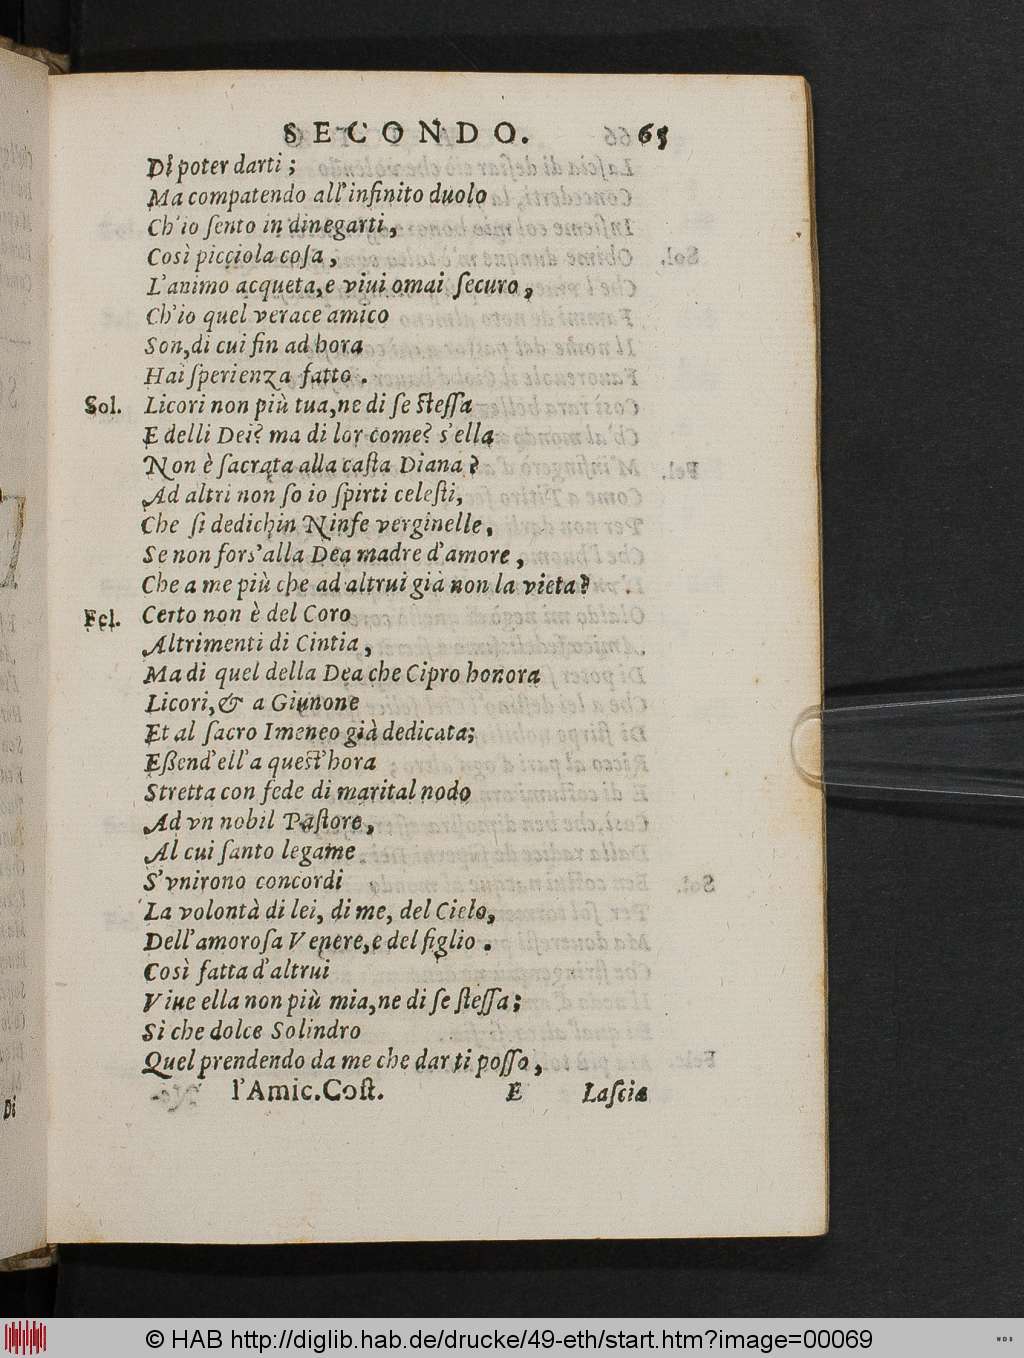 SECONDO. 65
Di poter darti;
Ma compatendo all'infinito duolo
Ch'io ſento in dinegarti,
Così picciola coſa,
L'animo acqueta, e viui omai ſecuro,
Ch'io quel verace amico
Son, di cui fin ad hora
Hai ſperienza fatto.
Sol. Licori non più tua, ne di ſe ſteſſa
E delli Dei? ma di lor come? s'ella
Non è ſacrata alla caſta Diana?
Ad altri non ſo io ſpirti celeſti,
Che ſi dedichin Ninfe verginelle,
Se non fors'alla Dea madre d'amore,
Che a me più che ad altrui già non la vieta?
Fel. Certo non è del Coro
Altrimenti di Cintia,
Ma di quel della Dea che Cipro honora
Licori, & a Giunone
Et al ſacro Imeneo già dedicata;
Eßend'ell'a queſt'hora
Stretta con fede di marital nodo
Ad vn nobil Paſtore,
Al cui ſanto legame
S'vnirono concordi
La volontà di lei, di me, del Cielo,
Dell'amoroſa Venere, e del figlio.
Così fatta d'altrui
Viue ella non più mia, ne di ſe ſteſſa;
Sì che dolce Solindro
Quel prendendo da me che dar ti poſſo,
l'Amic. Coſt. E Laſcia
Di
© HAB http://diglib.hab.de/drucke/49-eth/start.htm?image=00069